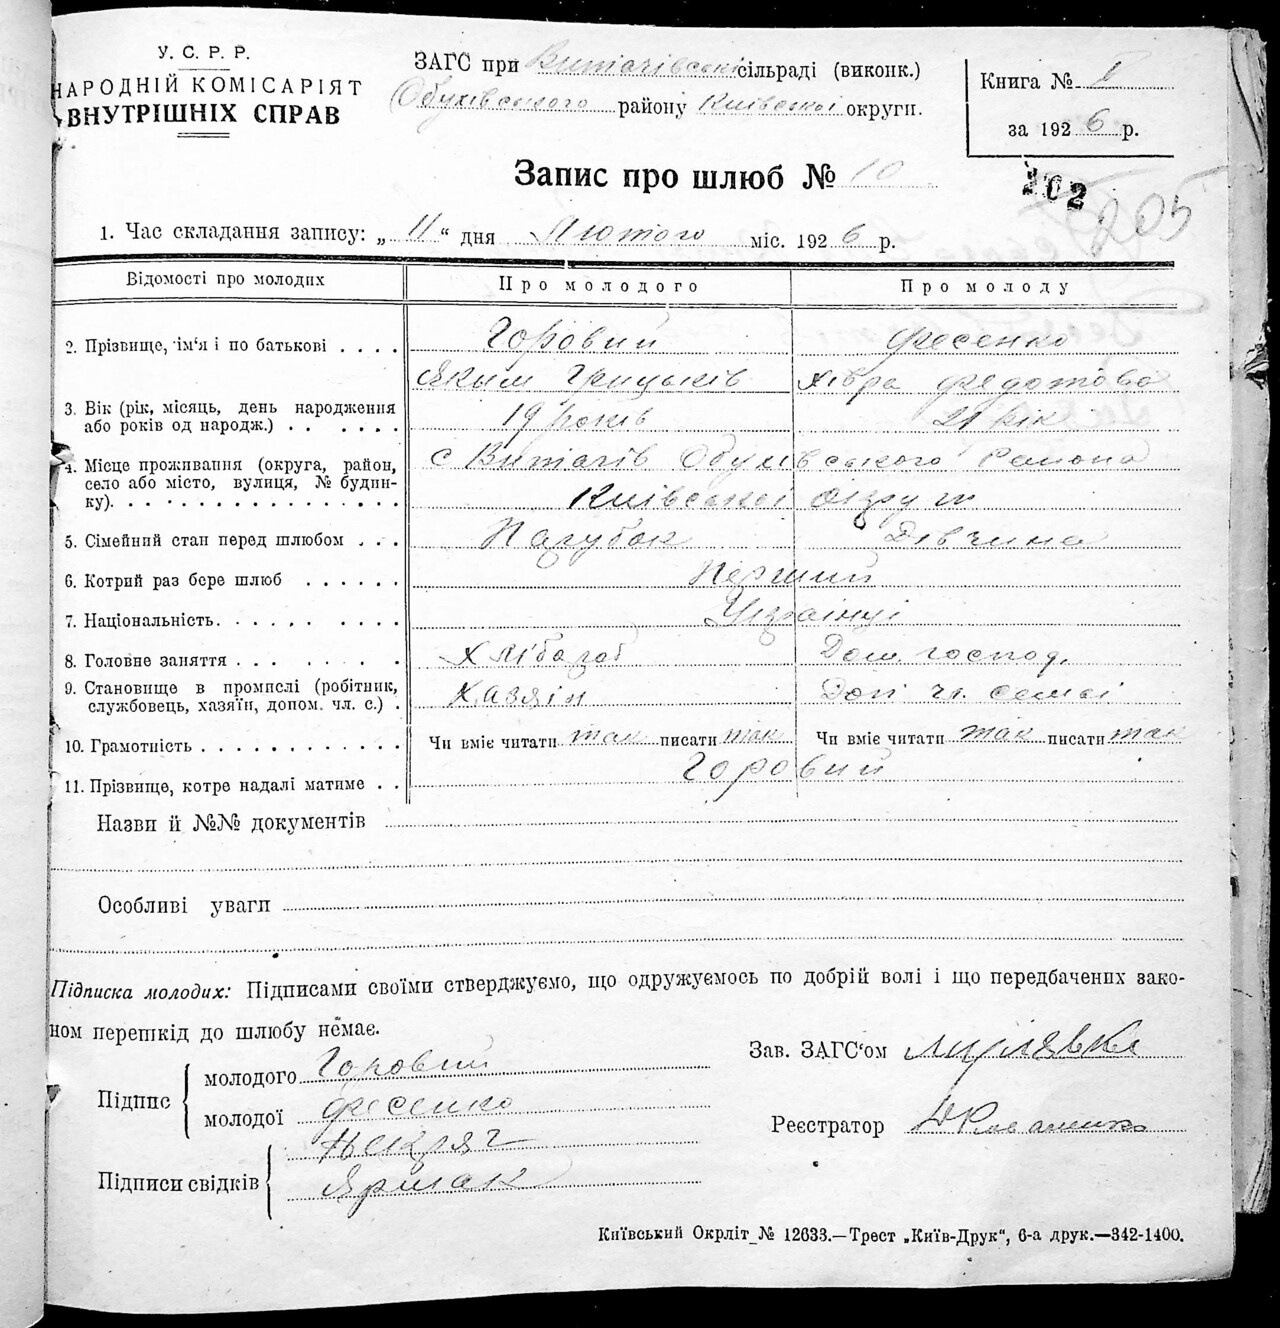 У. С. Р. Р.
НАРОДНІЙ КОМІСАРІЯТ
ВНУТРІШНІХ СПРАВ
ЗАГС при Витачівські сільраді (виконк.)
Обухівського району Київської округи.
Книга № I
за 1926 р.
Запис про шлюб № 10
202
205
1. Час складання запису: „11“ дня Лютого міс. 1926 р.
Відомості про молодих Про молодого Про молоду
2. Прізвище, ім'я і по батькові . . . . Горовий Фесенко
Яким Грицьків Хівра Федотова
3. Вік (рік, місяць, день народження
або років од народж.) . . . . . . 19 років 21 рік
4. Місце проживання (округа, район,
село або місто, вулиця, № будин-
ку). с Витачів Обухівського Района
Київської округи
5. Сімейний стан перед шлюбом . . . Парубок Дівчина
6. Котрий раз бере шлюб . . . . . . Перший
7. Національність. Українці
8. Головне заняття . . . Хлібороб Дом. господ.
9. Становище в промислі (робітник,
службовець, хазяїн, допом. чл. с.) . Хазяін Доп чл. семьі
10. Грамотність . . . Чи вміє читати так писати так Чи вміє читати так писати так
11. Прізвище, котре надалі матиме . . Горовий
Назви й №№ документів
Особливі уваги
Підписка молодих: Підписами своїми стверджуємо, що одружуємось по добрій волі і що передбачених зако-
ном перешкід до шлюбу немає.
Підпис
молодого Горовий
молодої Фесенко
Підписи свідків
Некряч
Ярмак
Зав. ЗАГС'ом
Реєстратор
Київський Окрліт № 12633.—Трест „Київ-Друк“, 6-а друк.—342-1400.